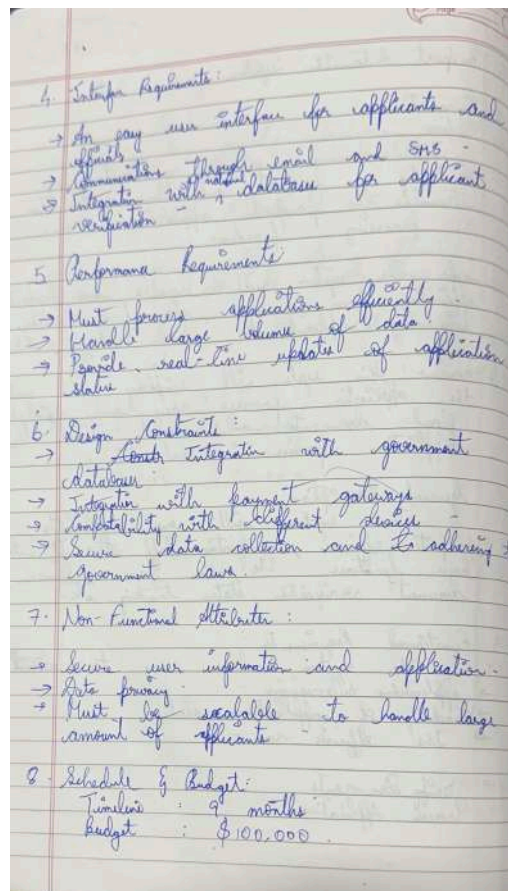 4. Interface Requirements:
→ An easy user interface for applicants and
officials
→ Communications through email and SMS.
→ Integration with national databases for applicant
verification
5 Performance Requirements:
→ Must process applications efficiently.
→ Handle large volume of data.
→ Provide real-time updates of application
status
6. Design Constraints:
→ Integration with government
databases
→ Integration with payment gateways
→ Comfortability with different devices
→ Secure data collection and adhering to
government laws.
7. Non-Functional Attributes:
→ Secure user information and application.
→ Data privacy.
→ Must be scalable to handle large
amount of applicants
8. Schedule & Budget:
Timeline : 9 months
Budget : $100,000.